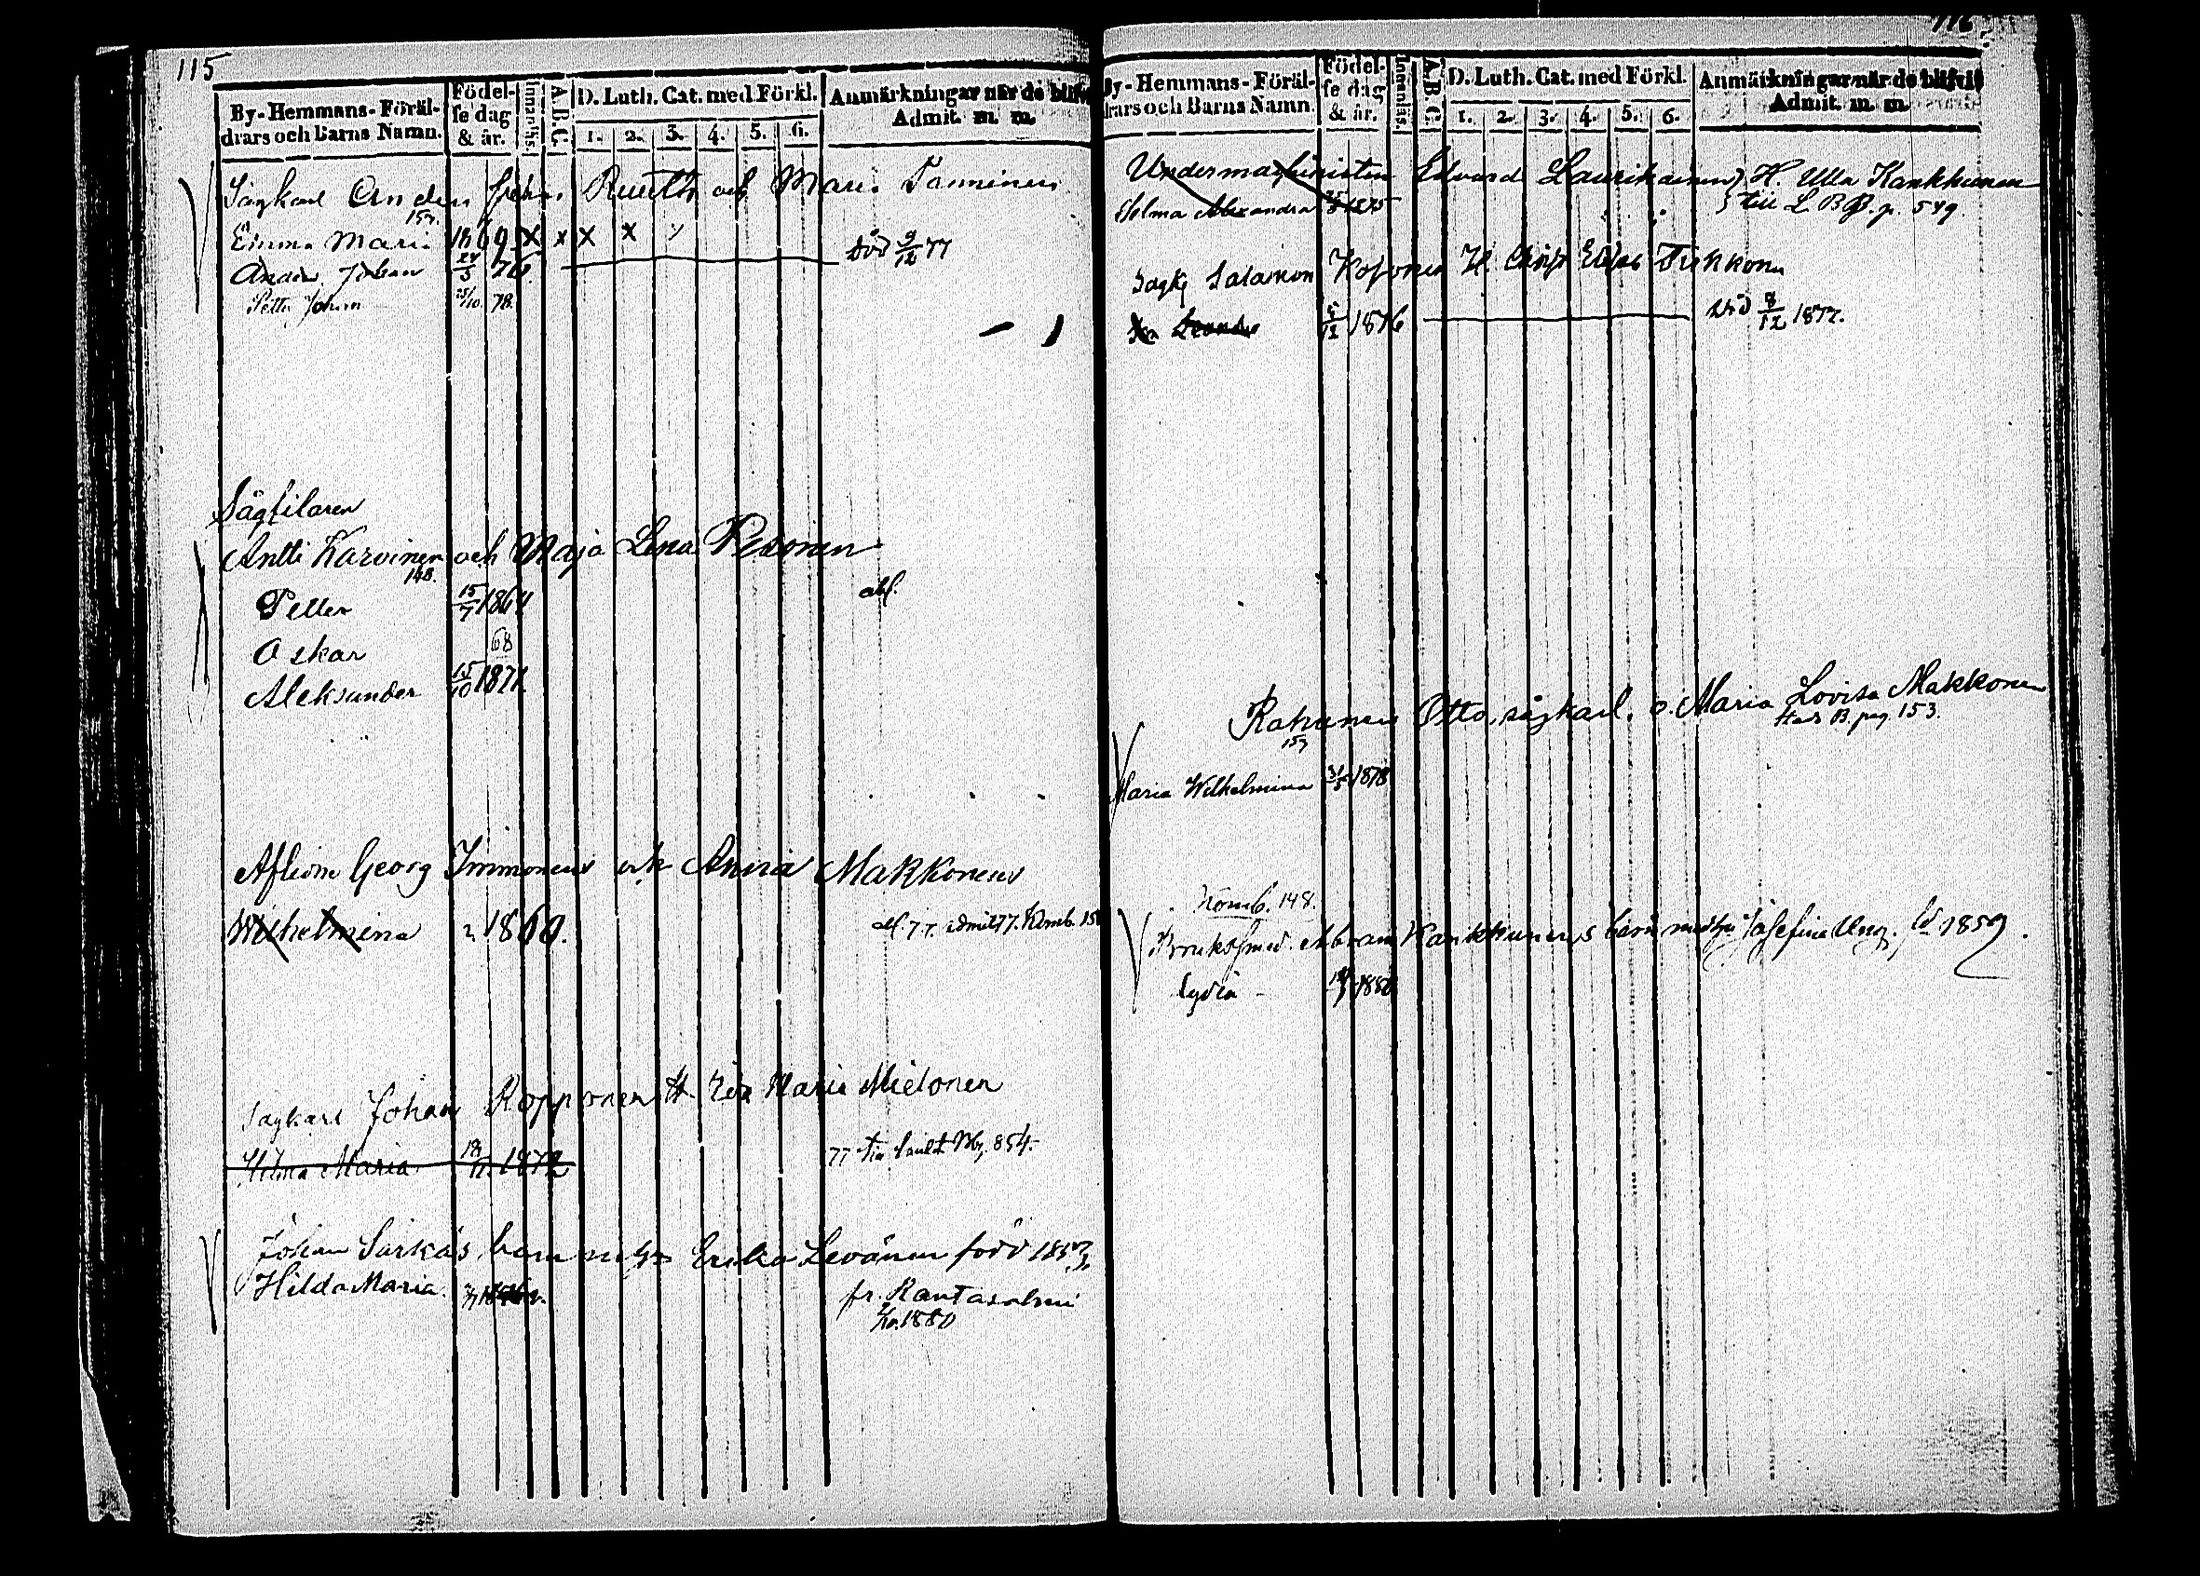 115
By-Hemmans-Föräl-
drars och Barns Namn.
Födel-
se dag
& år.
Innanläs.
A.B.C.
D. Luth. Cat. med Förkl.
1. 2. 3. 4. 5. 6.
Anmärkningar när de blifvit
Admit. m. m.
Sågkarl Anders Johan Rueuth och Maria Tanninen
Emma Maria 1869 x x x x
Anders Johan 24/5 76. död 9/12 77
Petter Johan 25/10 78.
Sågfilaren
Antti Karvinen och Maja Lena Pesonen
148.
Petter 15/7 1864 abf.
Oskar 68
Aleksander 15/10 1871
Aflidne Georg Immonens och Anna Makkonens
Wilhelmina 1860. abf. 77. admit 77. Komb. 15
Sågkarl Johan Ropponen H. Eva Maria Mielonen
Hilma Maria 18/11 1872 77 till Bby. 854.
Johan Särkäs barn m. h. Erika Levänen född 1853
Hilda Maria. fr. Rantasalmi
1880
116
By-Hemmans-Föräl-
drars och Barns Namn
Födel-
se dag
& år.
Innanläs.
A.B.C.
D. Luth. Cat. med Förkl.
1. 2. 3. 4. 5. 6.
Anmärkningar när de blifvit
Admit. m. m.
Undermaskinisten Edvard Laurikainen H. Ulla Kankkunen
Selma Alexandra 25/8 1875 till L B B. p. 549.
Sågk. Salamon Kosonen H. Christ. Elisab. Tirkkonen
5/12 1876 död 8/12 1877.
Rahunen Otto, sågkarl. o. Maria Lovisa Makkonen
159 Hars B. pag. 153.
Maria Wilhelmina 31/5 1878
Komb. 148.
Brukssmed. Abram Kankkunens barn med h. Josefina Ung. fd 1859.
Lydia 1880